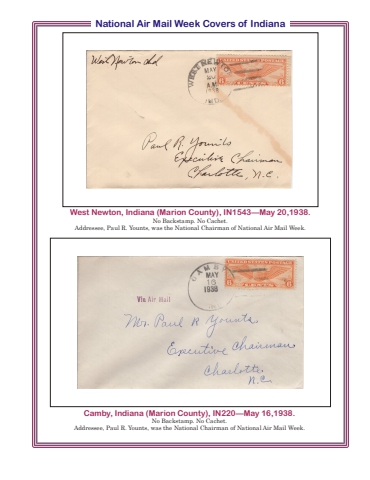 National Air Mail Week Covers of Indiana
West Newton Ind
WEST NEWTON
MAY
20
A.M.
1938
IND.
UNITED STATES POSTAGE
6 CENTS 6
Paul R. Younts
Executive Chairman
Charlotte, N.C.
West Newton, Indiana (Marion County), IN1543—May 20,1938.
No Backstamp. No Cachet.
Addressee, Paul R. Younts, was the National Chairman of National Air Mail Week.
CAMBY
MAY
16
1938
UNITED STATES POSTAGE
6 CENTS 6
Via Air Mail
Mr. Paul R Younts
Executive Chairman
Charlotte
N.C.
Camby, Indiana (Marion County), IN220—May 16,1938.
No Backstamp. No Cachet.
Addressee, Paul R. Younts, was the National Chairman of National Air Mail Week.